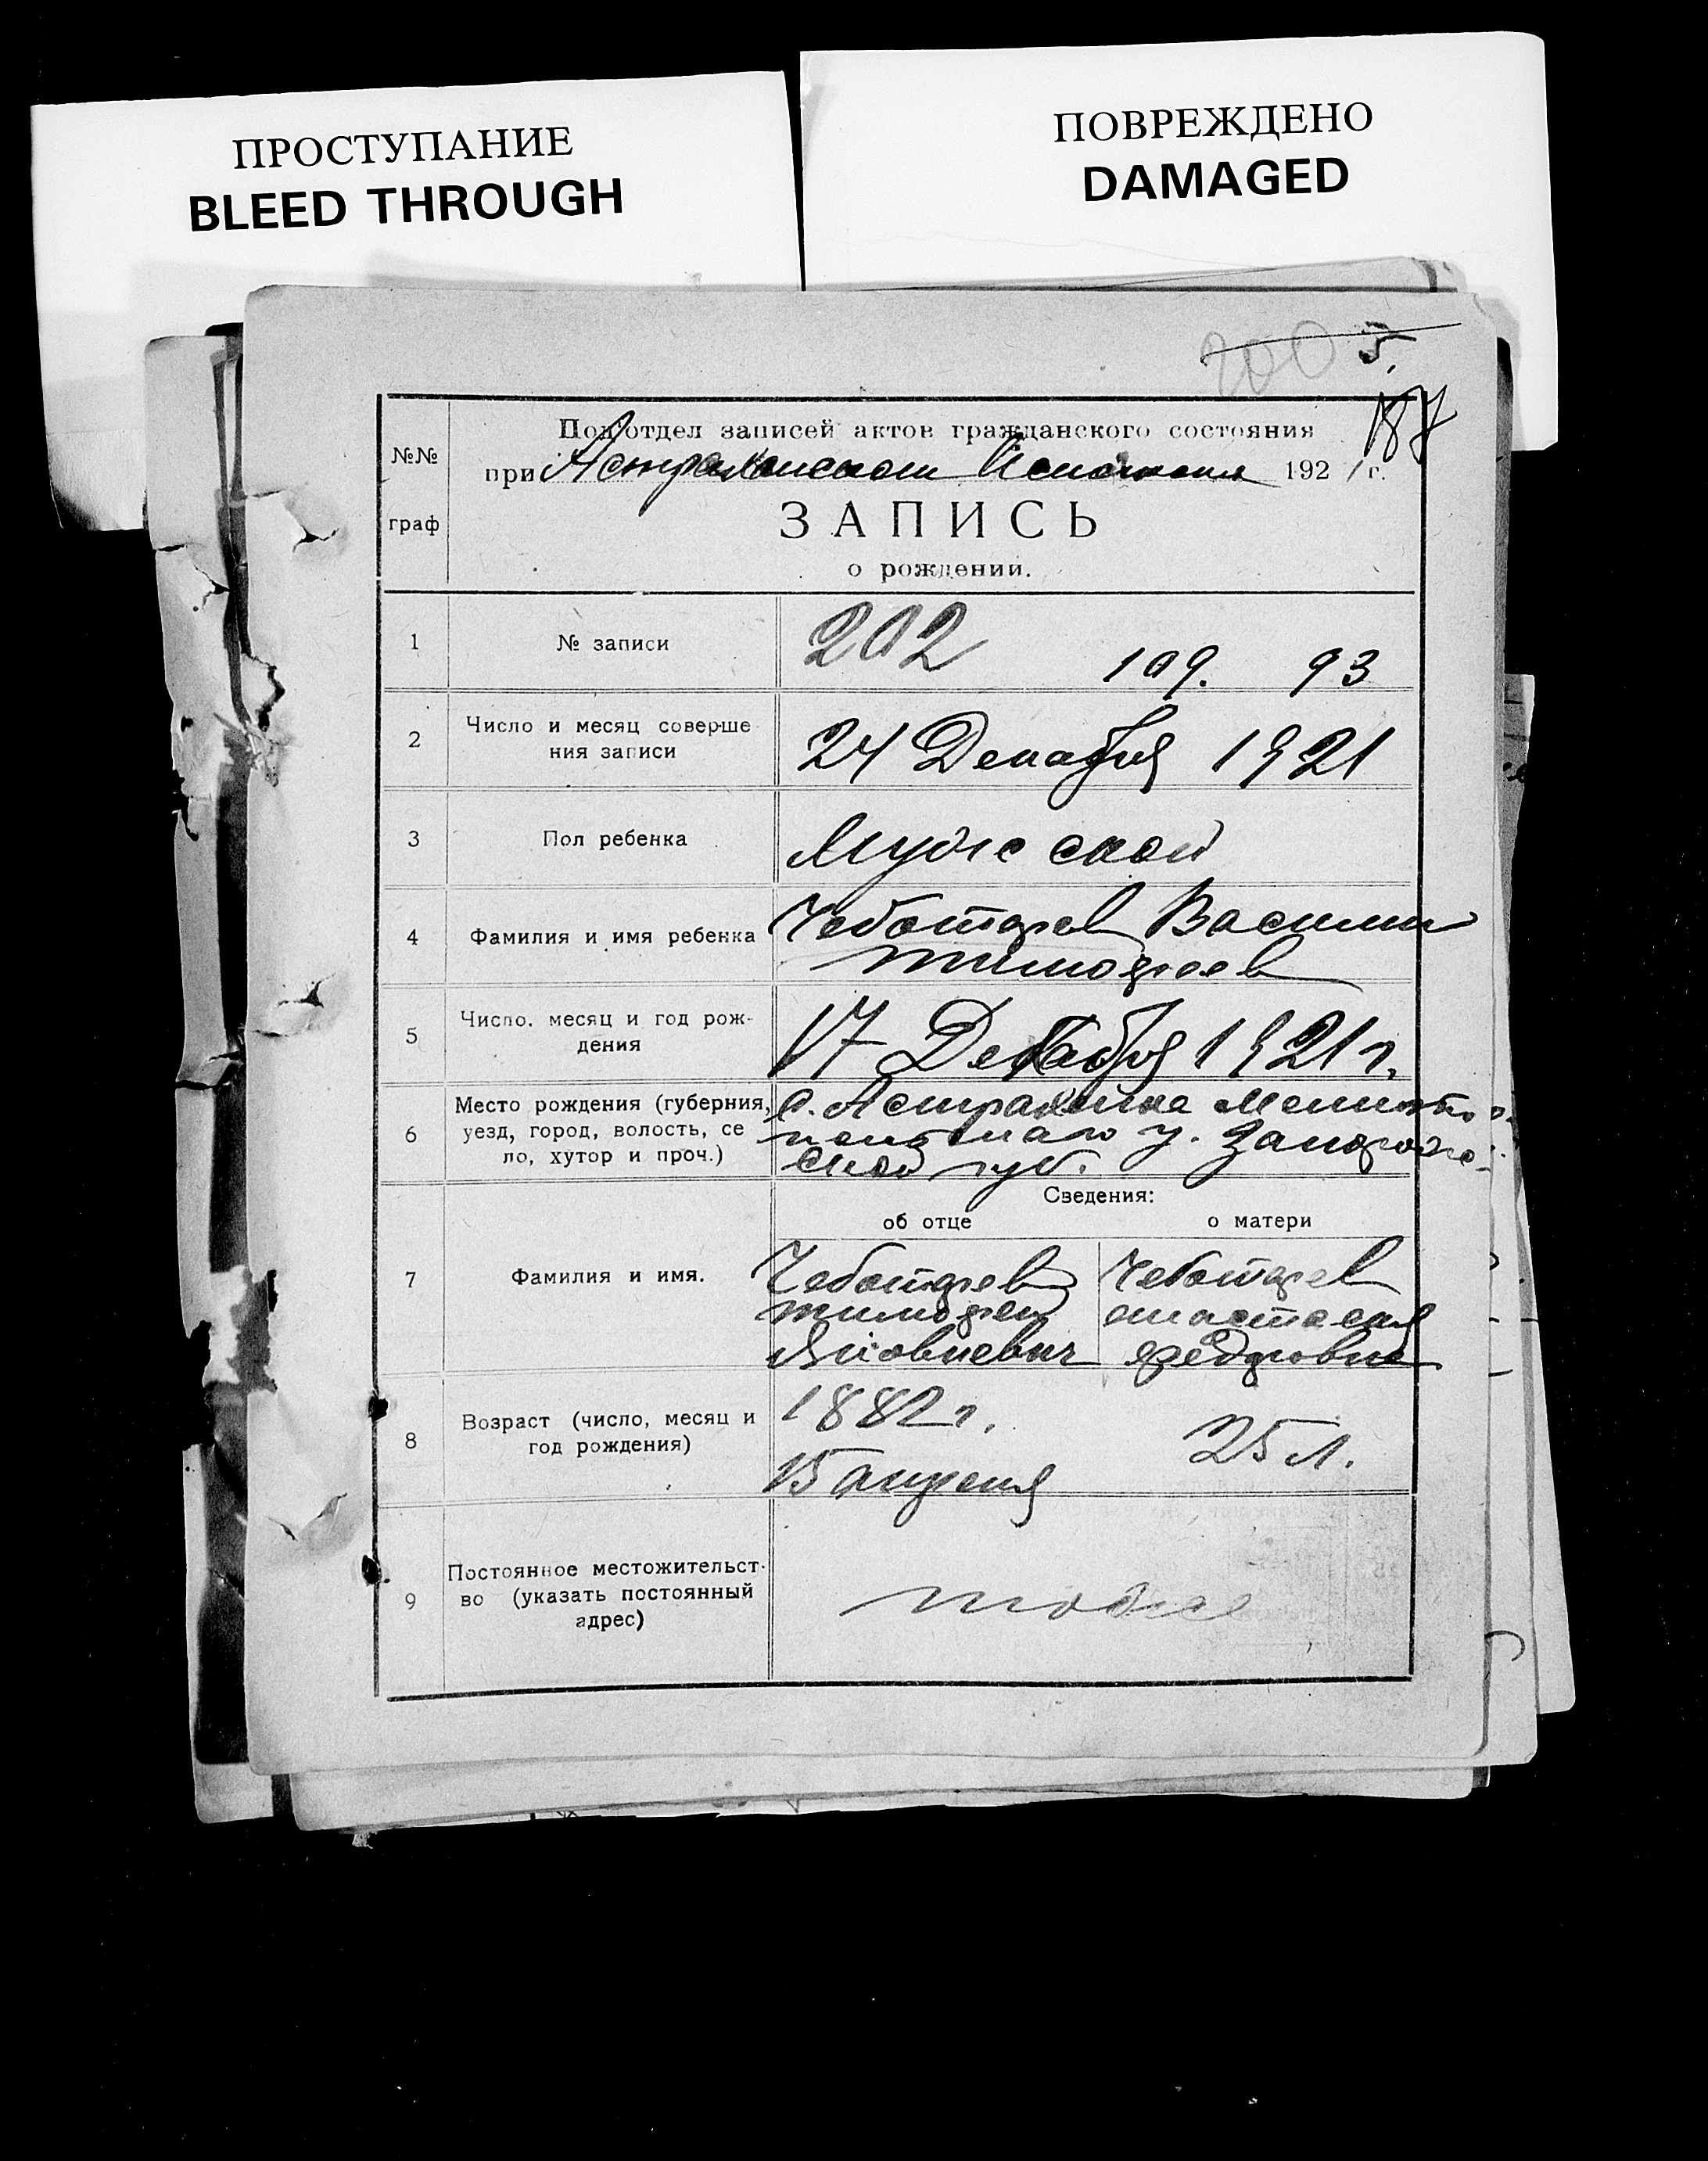 ПРОСТУПАНИЕ
BLEED THROUGH
ПОВРЕЖДЕНО
DAMAGED
200 5.
187
Под'отдел записей актов гражданского состояния
при Астраханском 1921 г.
№№
граф
ЗАПИСЬ
о рождении.
1 № записи 202 109. 93
2 Число и месяц соверше
ния записи 24 Декабря 1921
3 Пол ребенка Мужской
4 Фамилия и имя ребенка Чеботарев Василий
Тимофеев
5 Число. месяц и год рож-
дения 17 Декабря 1921 г.
6 Место рождения (губерния,
уезд, город, волость, се
ло, хутор и проч.)
с. Астраханка Мелито
польскаго у. Запорож
ской губ.
Сведения:
об отце о матери
7 Фамилия и имя.
Чеботарев
Тимофей
Яковлевич
Чеботарев
анастасия
федоровна
8 Возраст (число, месяц и
год рождения)
1882 г.
15 апреля
25 л.
9 Постоянное местожительст-
во (указать постоянный
адрес)
тоже